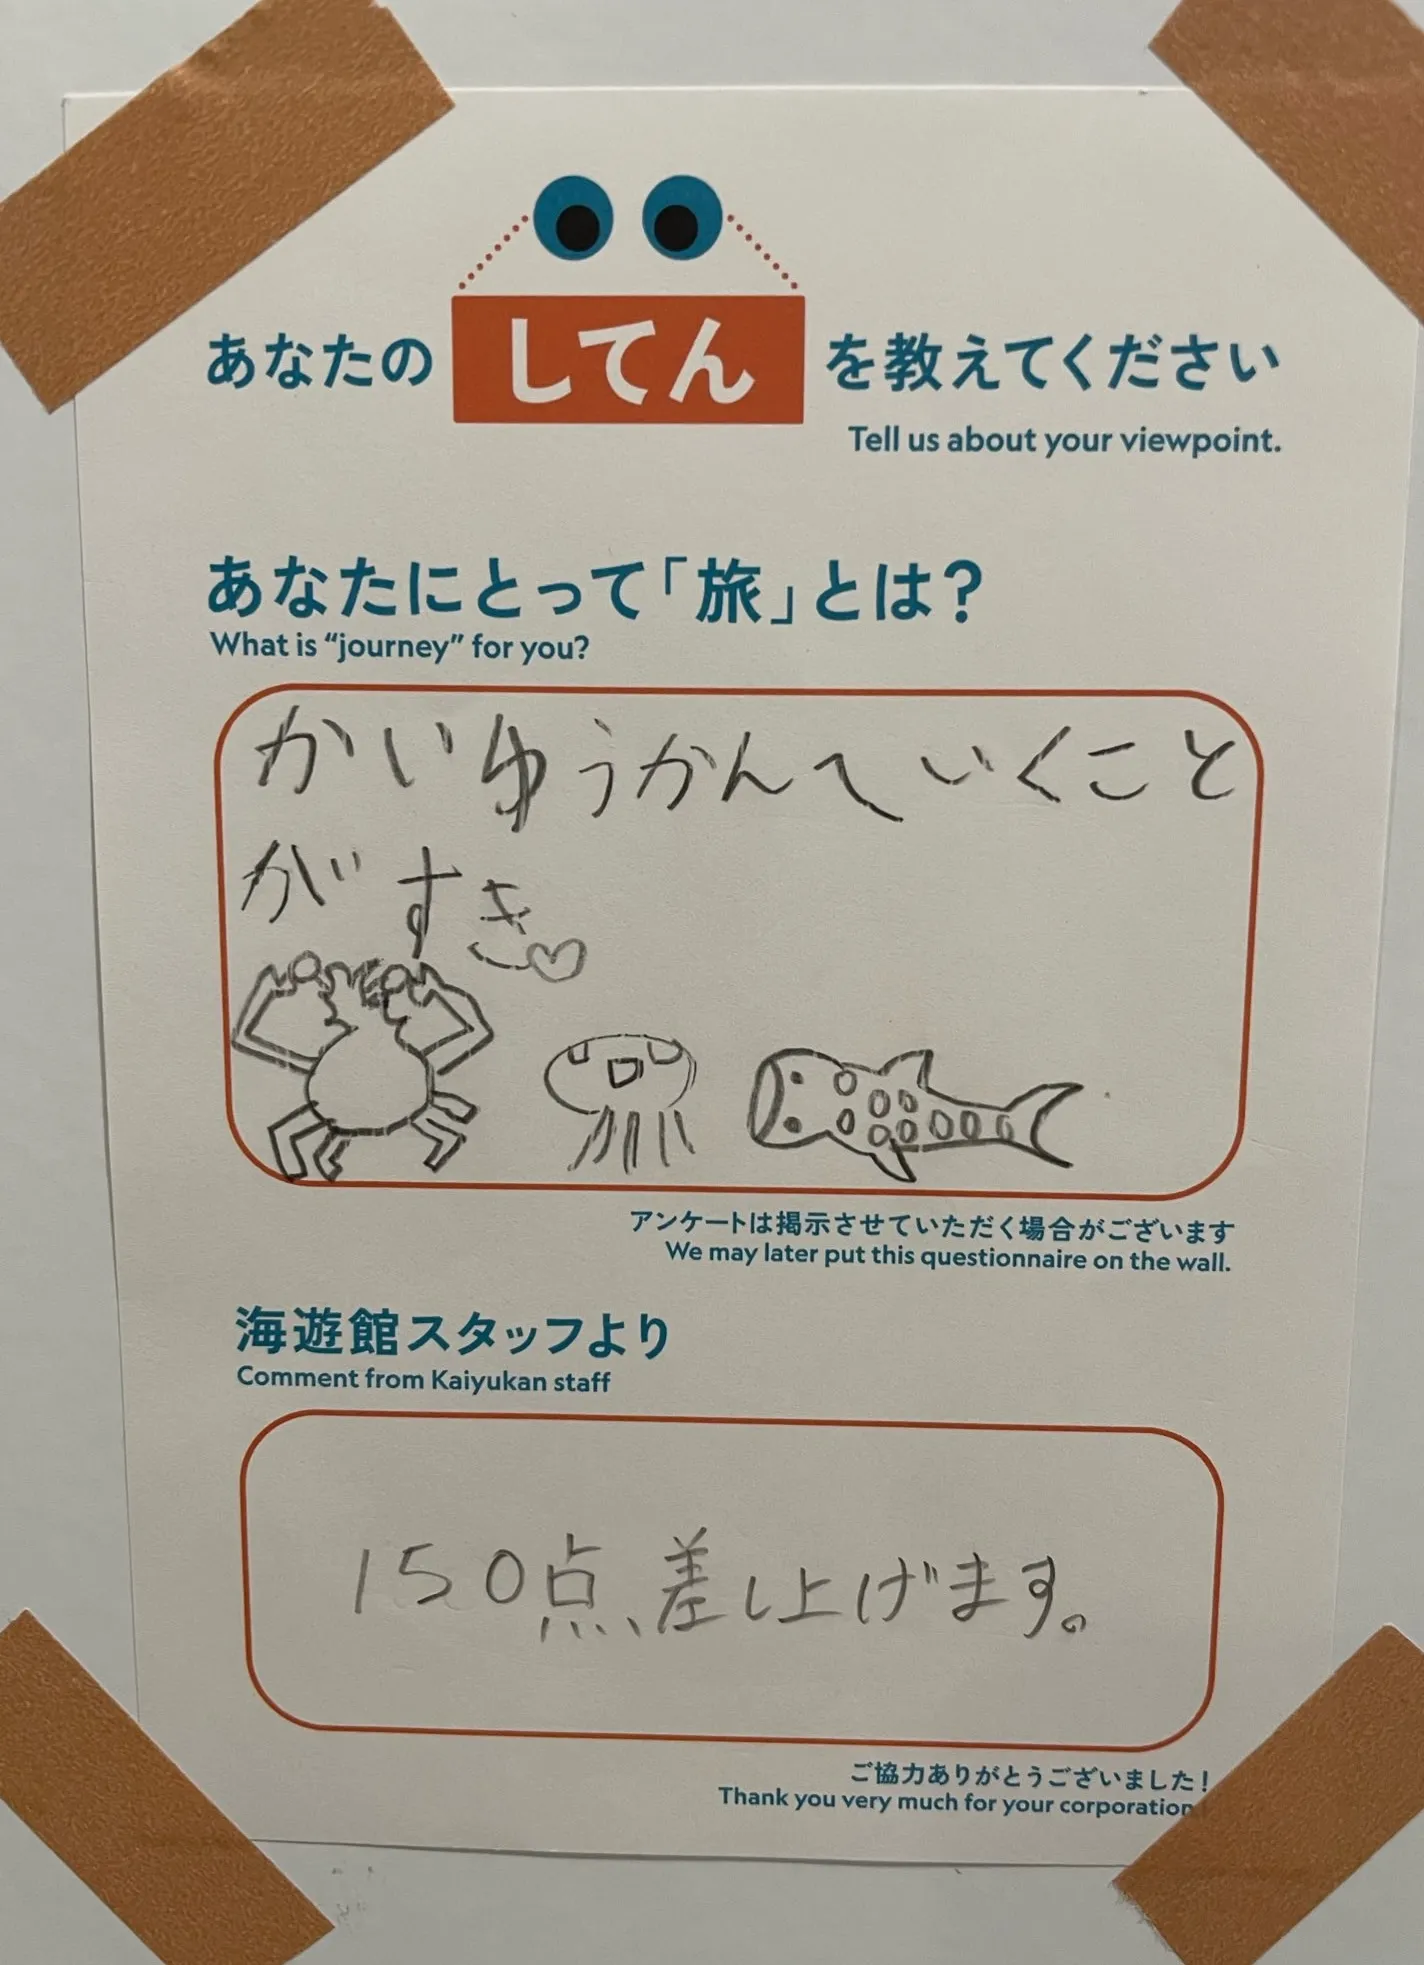 あなたの してん を教えてください
Tell us about your viewpoint.
あなたにとって「旅」とは？
What is “journey” for you?
かいゆうかんへいくこと
がすき♡
アンケートは掲示させていただく場合がございます
We may later put this questionnaire on the wall.
海遊館スタッフより
Comment from Kaiyukan staff
150点、差し上げます。
ご協力ありがとうございました！
Thank you very much for your corporation!